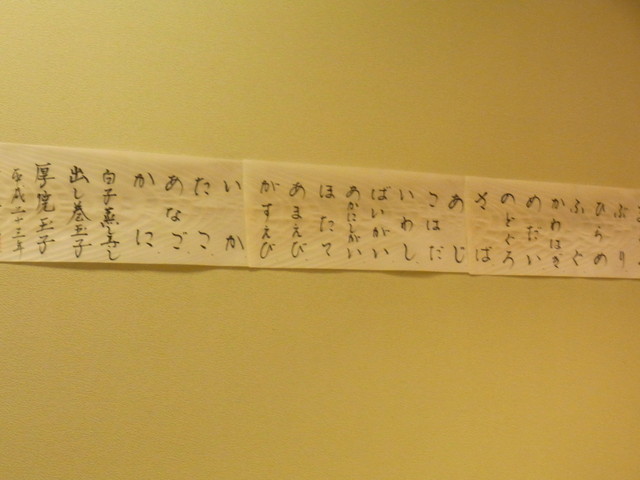 ぶり
ひらめ
ふぐ
かわはぎ
めだい
のどぐろ
さば
あじ
こはだ
いわし
ばいがい
あかにしがい
ほたて
あまえび
がすえび
いか
たこ
あなご
かに
白子蒸し
出し巻玉子
厚焼玉子
平成二十三年